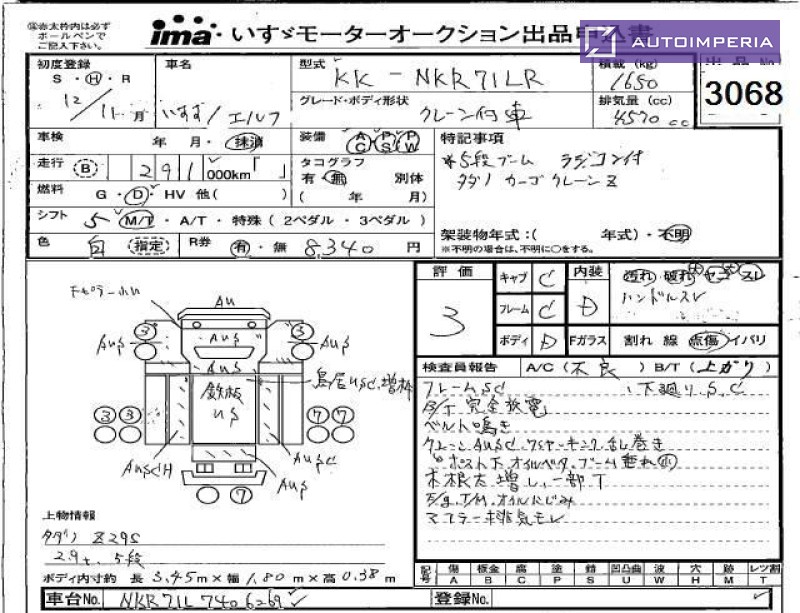 ㊟赤太枠内は必ず
ボールペンで
ご記入下さい。
ima・いすゞモーターオークション出品申込書
AUTOIMPERIA
初度登録
S・H・R
12/11月
車名
いすゞ/エルフ
型式
KK-NKR71LR
積載(kg)
1650
出品No
3068
グレード・ボディ形状
クレーン付車
排気量(cc)
4570cc
車検
年 月・抹消
装備
AC PS PW
特記事項
*5段ブーム ラジコン付
タダノ カーゴクレーンZ
走行
B 291,000km「 」
タコグラフ
有・無 別体
( 年 月)
燃料
G・D・HV 他( )
シフト
5 M/T・A/T・特殊(2ペダル・3ペダル)
架装物年式:( 年式)・不明
※不明の場合は、不明に○をする。
色
白 (指定)
R券
有・無 8,340円
評価
3
キャブ C
フレーム C
ボディ D
内装
D
汚れ 破れ ヤコゲ スレ
ハンドルスレ
Fガラス
割れ 線 点傷 イバリ
検査員報告
A/C(不良) B/T(上がり)
フレームSC
下廻り.S.C
B/T 完全放電
ベルト鳴き
クレーンAUSC ワイヤーキンク 乱巻き
木根太増し,一部T
E/g.T/M.オイルにじみ
マフラー排気モレ
AU
AUS
AUS
AUS
AUS
鳥居USC.増枠
鉄板
US
③
③
③③
⑦⑦
AUSCH
AUSC
AUS
⑦
上物情報
タダノ Z295
2.9t、5段
ボディ内寸約 長 3.45m×幅 1.80m×高 0.38m
記号
傷 板金 腐 塗 錆 凹凸曲 波 穴 跡 レツ割
A B C P S U W H M T
車台No.
NKR71L 7406269
登録No.